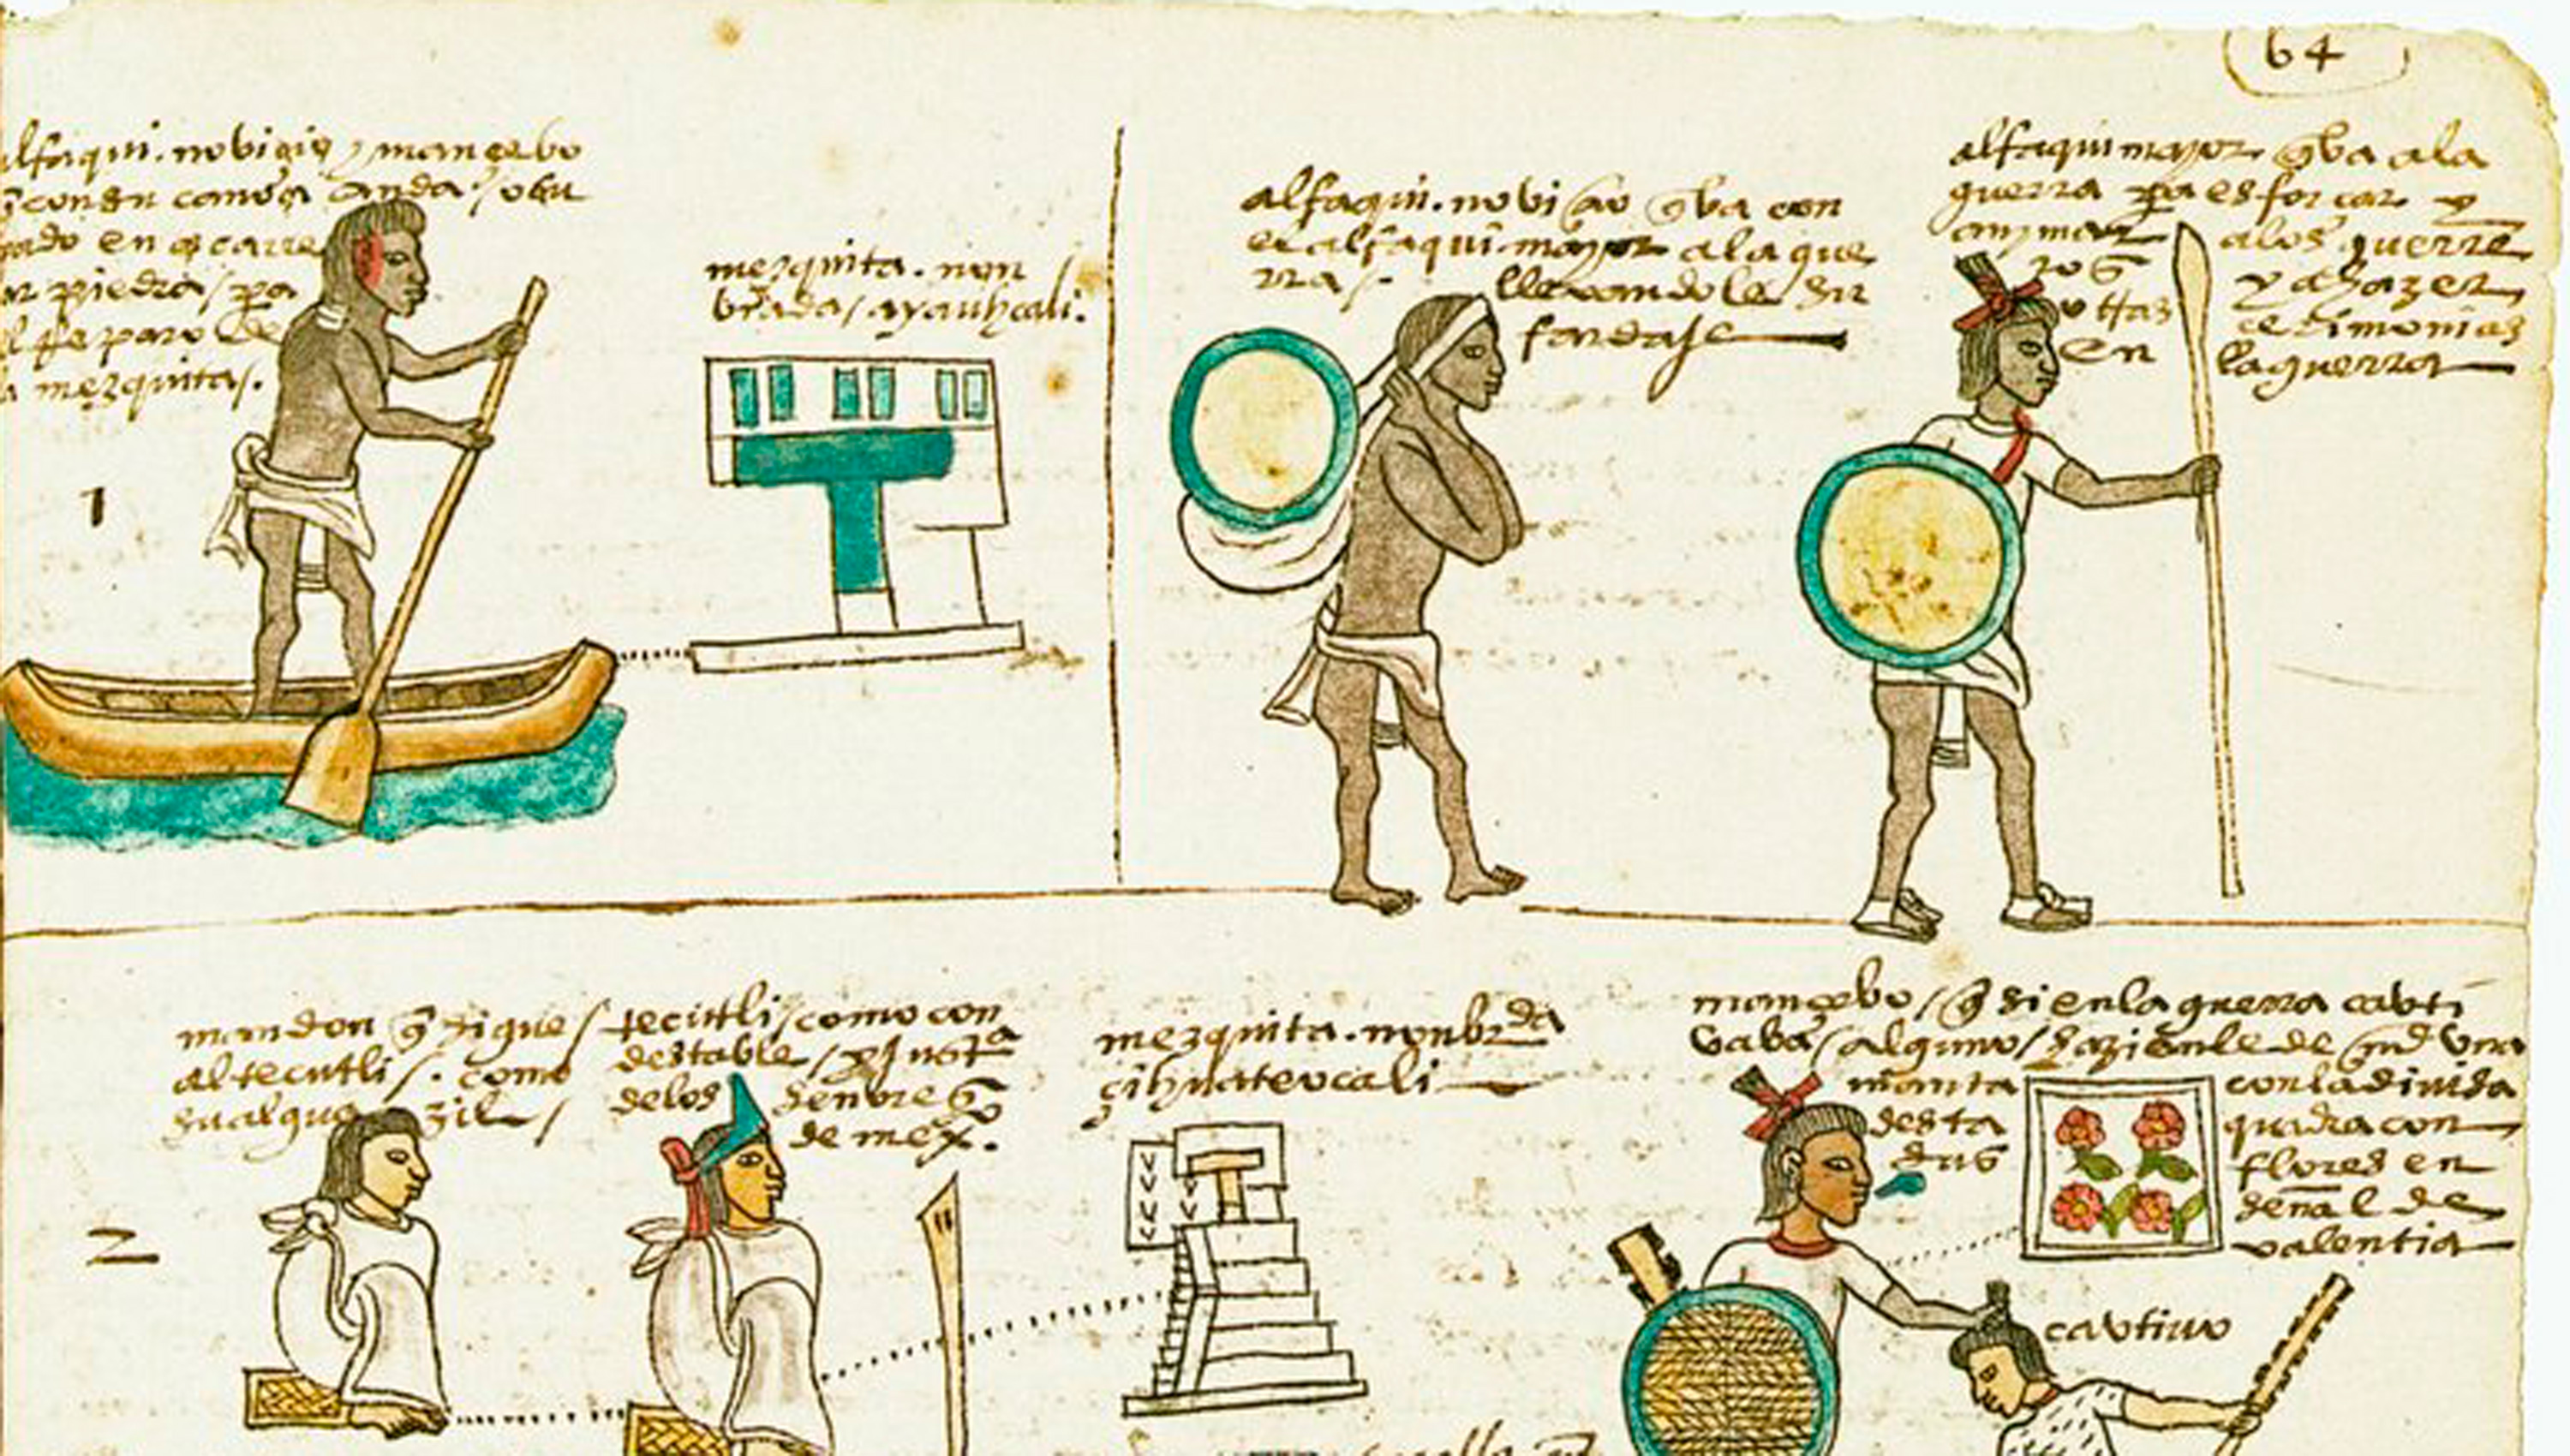 64
alfaqui. nobiçio y mançebo
q̃ con su canoa anda / ocu
pado en q̃ carre
ar piedra / pa
el reparo de
la mezquita /.
mezquita. non
brada / ayauhcali.
alfaqui. nobiçio q̃ ba con
el alfaqui mayor a la gue
rra /. llevandole su
fardaje
alfaqui mayor q̃ ba a la
guerra pa esforçar y
anymar a los guerre
ros y a hazer
otras çerimonias
en la guerra
1
mandon q̃ sigue /
al tecutli /. como
su alguazil /
tecutli / como con
destable
de los señores
de mexco.
mezquita. nonbrda
çihuateocali
mançebo / q̃ si en la guerra cauti
vaba / alguno / hazianle de md una
manta
desta
con la divisa
quadra con
flores en
señal de
valentia
2
cautivo